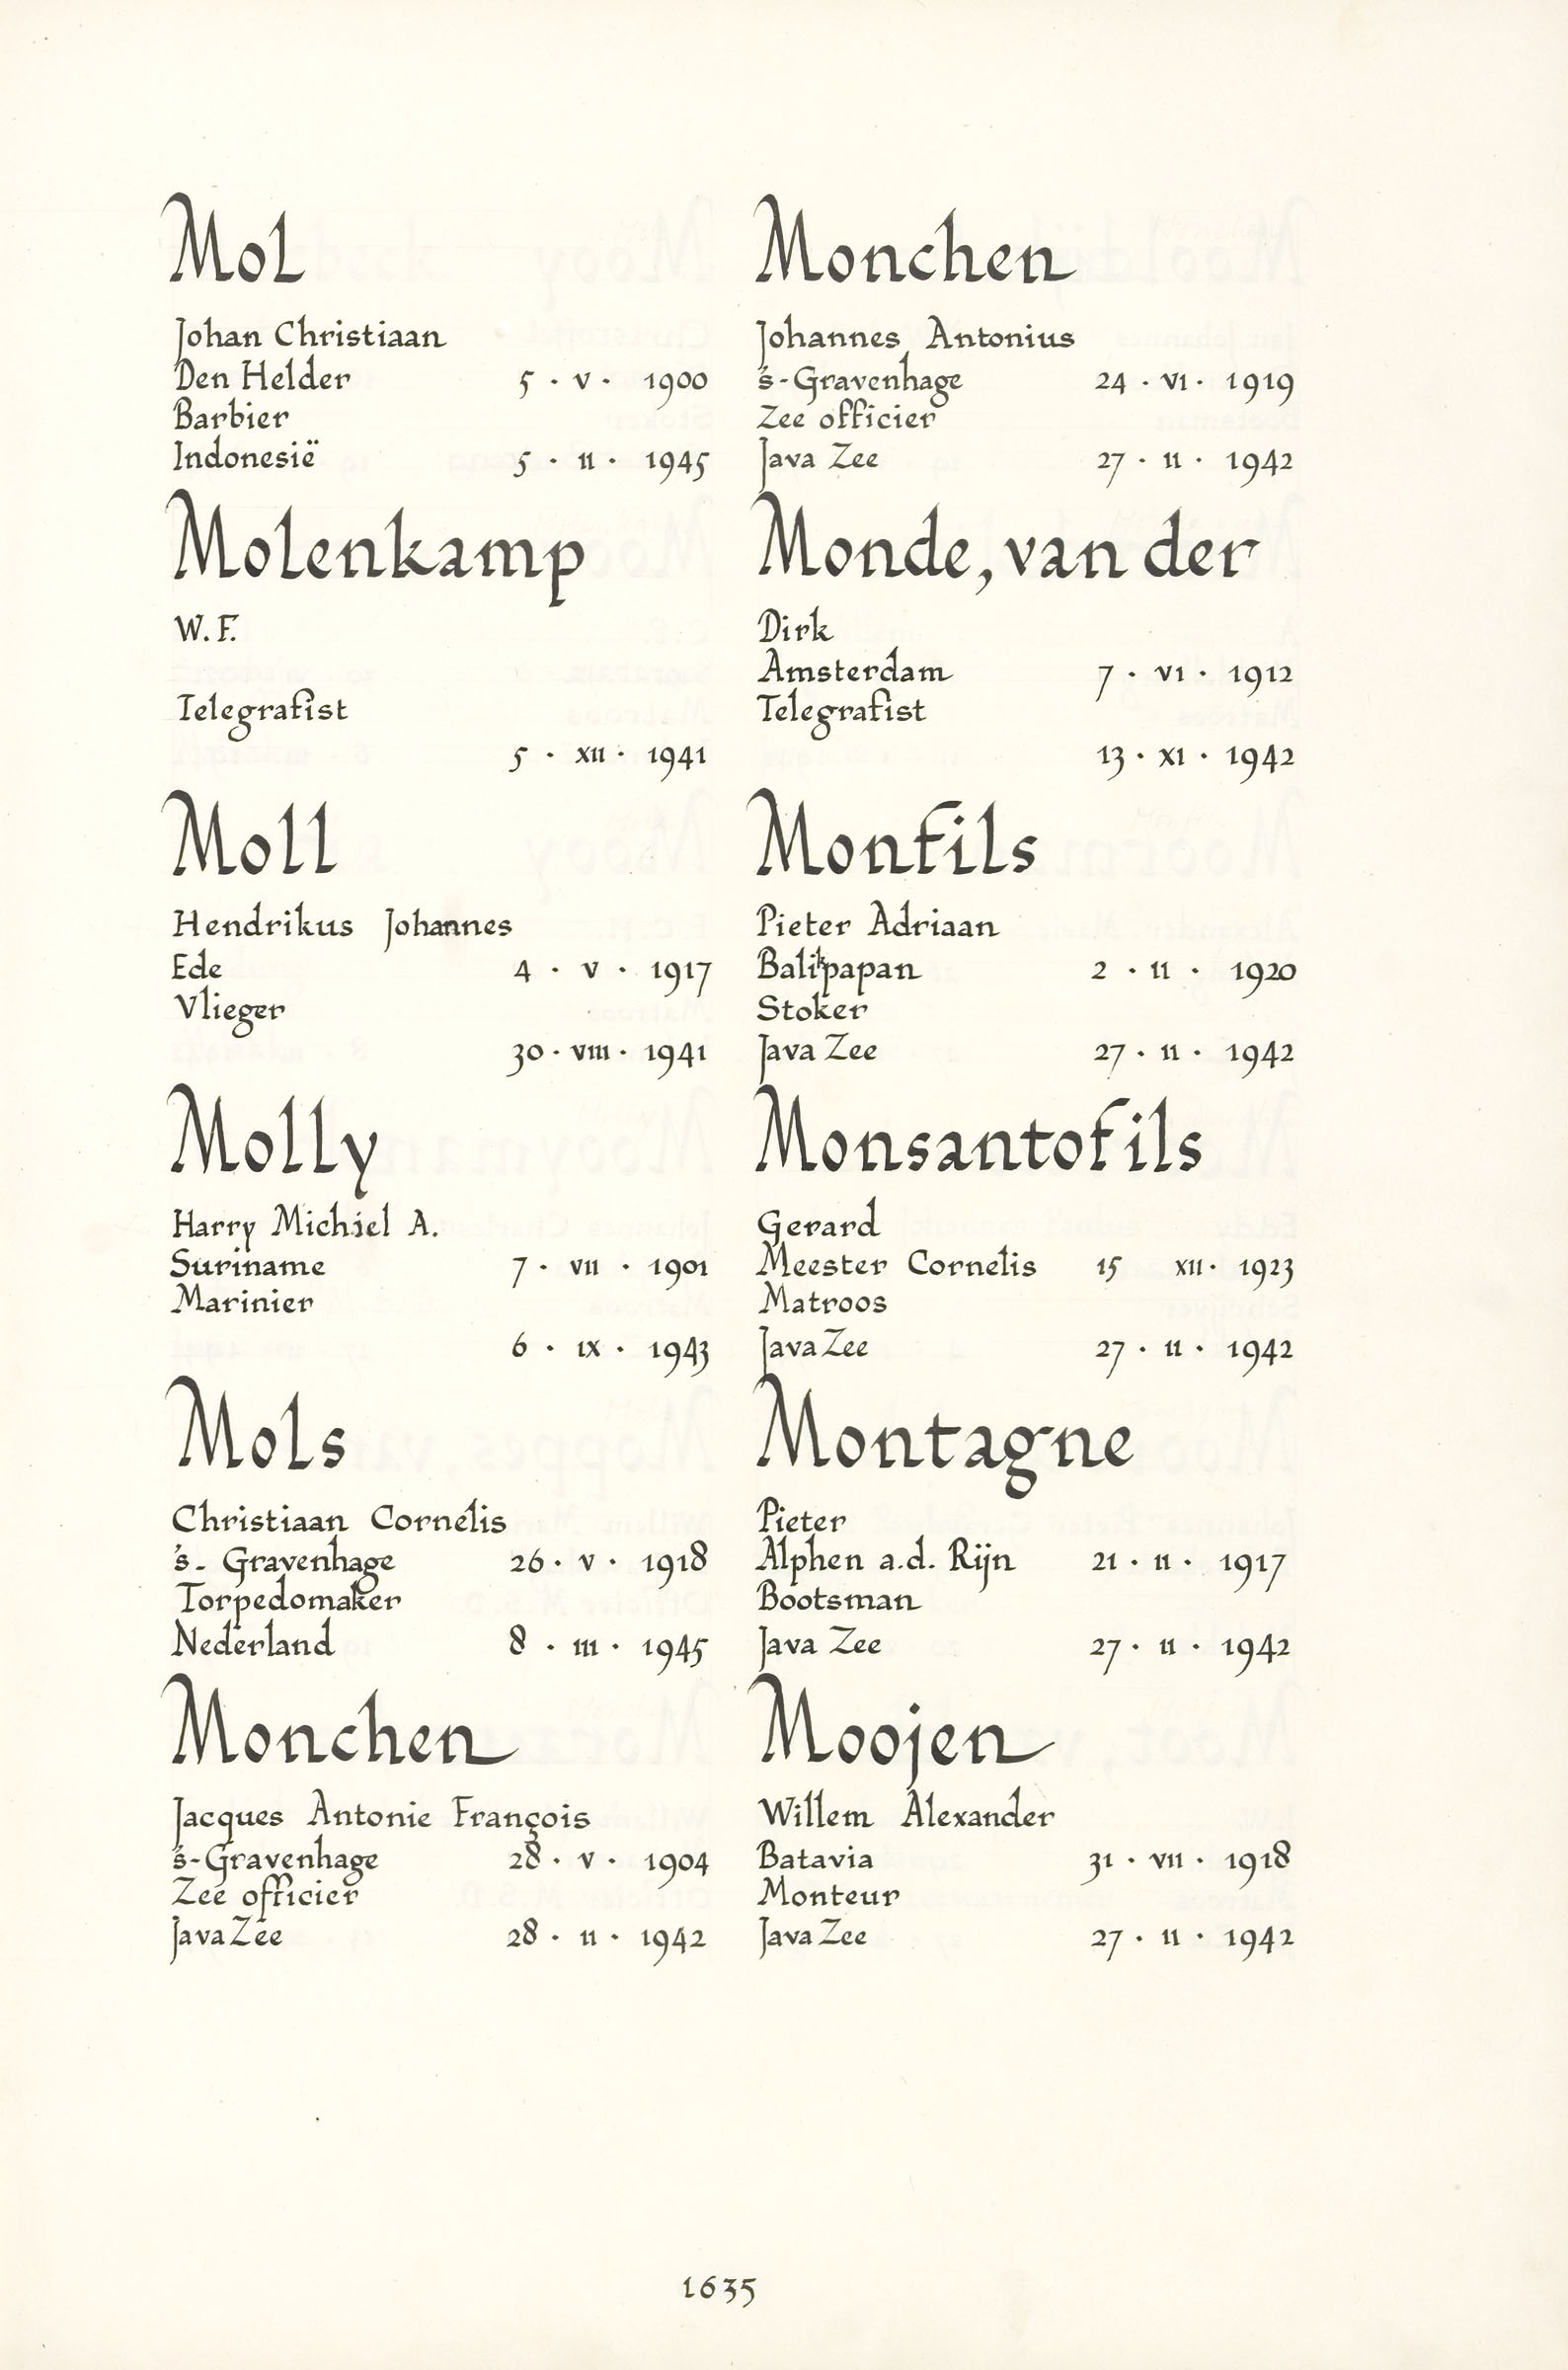 Mol
Johan Christiaan
Den Helder 5 · V · 1900
Barbier
Indonesië 5 · II · 1945
Molenkamp
W. F.
Telegrafist
5 · XII · 1941
Moll
Hendrikus Johannes
Ede 4 · V · 1917
Vlieger
30 · VIII · 1941
Molly
Harry Michiel A.
Suriname 7 · VII · 1901
Marinier
6 · IX · 1943
Mols
Christiaan Cornelis
's - Gravenhage 26 · V · 1918
Torpedomaker
Nederland 8 · III · 1945
Monchen
Jacques Antonie François
's-Gravenhage 28 · V · 1904
Zee officier
Java Zee 28 · II · 1942
Monchen
Johannes Antonius
's-Gravenhage 24 · VI · 1919
Zee officier
Java Zee 27 · II · 1942
Monde, van der
Dirk
Amsterdam 7 · VI · 1912
Telegrafist
13 · XI · 1942
Monfils
Pieter Adriaan
Balikpapan 2 · II · 1920
Stoker
Java Zee 27 · II · 1942
Monsantofils
Gerard
Meester Cornelis 15 XII · 1923
Matroos
Java Zee 27 · II · 1942
Montagne
Pieter
Alphen a.d. Rijn 21 · II · 1917
Bootsman
Java Zee 27 · II · 1942
Moojen
Willem Alexander
Batavia 31 · VII · 1918
Monteur
Java Zee 27 · II · 1942
1635